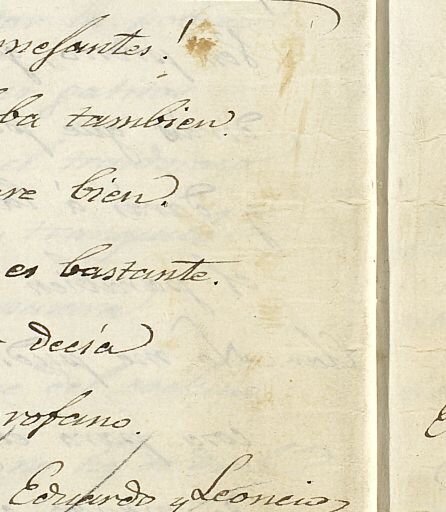 mesantes!
ba tambien.
re bien.
es bastante.
decía
rofano.
Eduardo y Leoncio